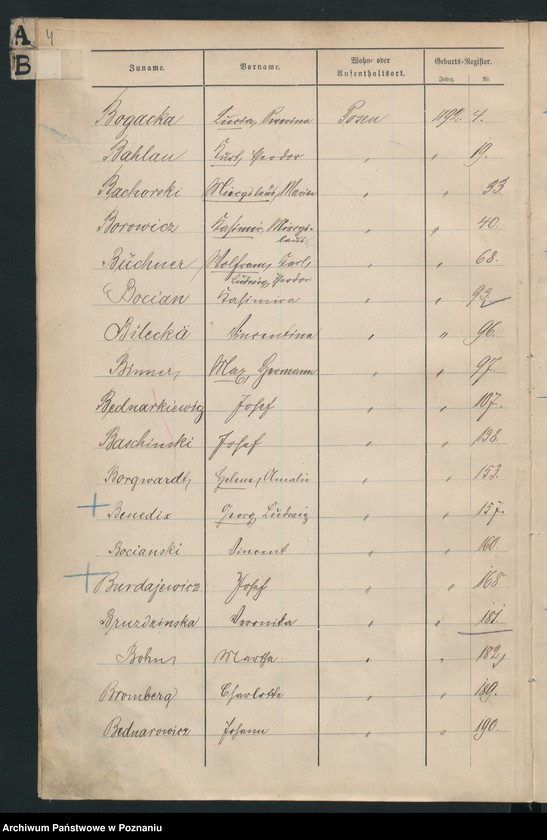 A
B
4
Zuname. Vorname. Wohn- oder Aufenthaltsort. Geburts-Register.
Jahrg. Nr.
Bogacka Lucia, Pervina Posen 1892 4.
Bahlau Kurt, Theodor " " 19.
Bachorski Miecyslaus, Marian " " 33
Borowicz Kasimir, Miecys- " " 40.
laus,
Büchner Wolfram, Karl, " " 68.
Ludwig, Theodor
Bocian Kasimira " " 93.
Bilecka Vincentina " " 96.
Binner, Max, Hermann " " 97
Bednarkiewicz Josef " " 107.
Baschinski Josef " " 138.
Borgwardt, Helene, Amalie " " 153.
Benedix Georg Ludwig " " 157.
Bocianski Vincent " " 160.
Burdajewicz Josef " " 168
Bruzdzinska Veronika " " 181.
Bohn, Martha " " 182,
Bromberg Charlotte " " 189.
Bednarowicz Johann " " 190.
Archiwum Państwowe w Poznaniu